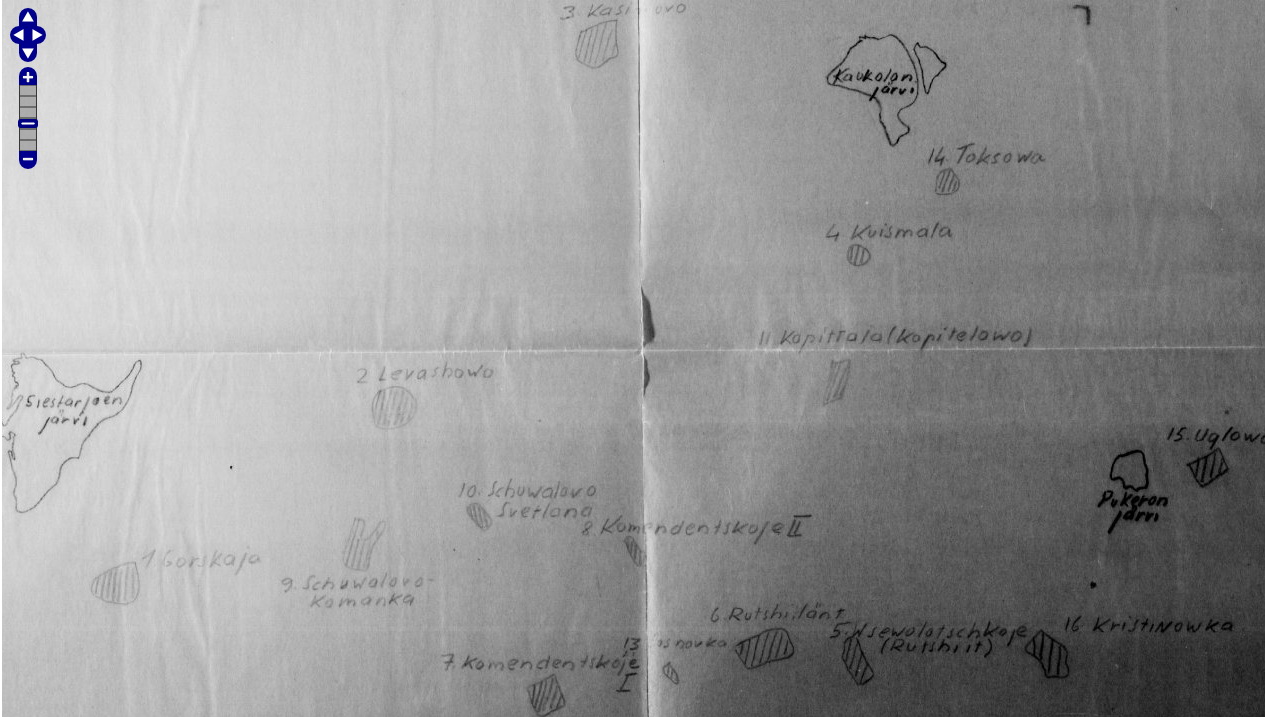 3. Kasi ovo
Kaukolan
järvi
14. Toksowa
4 Kuismala
11 Kapittala (kapitelowo)
2 Levashowo
Siestarjoen
järvi
15. Uglowo
10. Schuwalovo
Svetlana
Pukeron
järvi
8. Komendentskoje II
1 Gorskaja
9. Schuwalovo-
Komanka
6. Rutshii länt
5. Wsewolotschkoje
(Rutshi it)
16 Kristinowka
13 osnovka
7. Komendentskoje
I